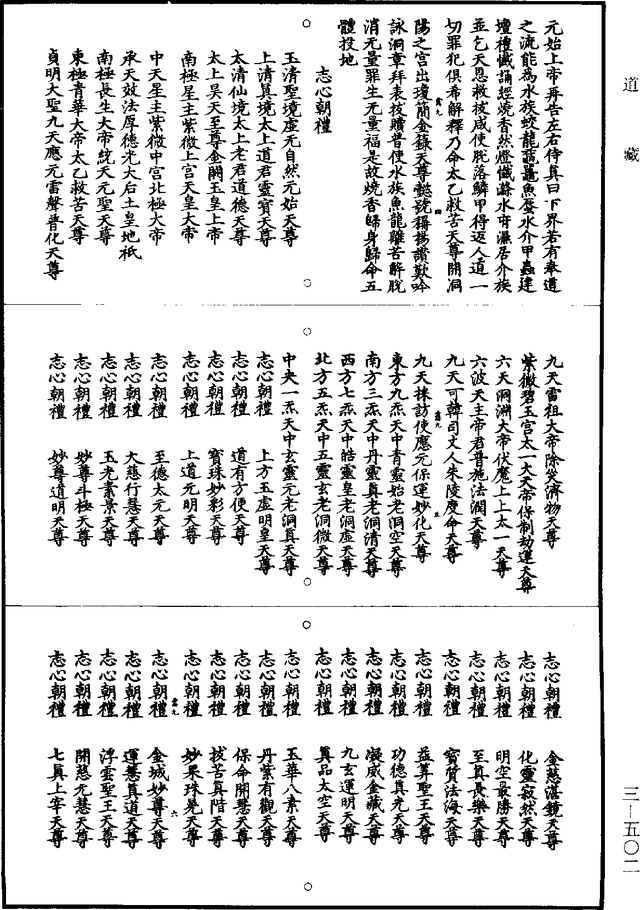 道藏
元始上帝再告左右侍真曰下界若有奉道
之流能為水族蛟龍黿鼉魚蜃水介甲蟲建
壇禮懺誦經燒香然燈懺滌水府濕居介族
並乞天恩赦拔咸使脫落鱗甲得返人道一
切罪犯俱希解釋乃命太乙救苦天尊開洞
陽之宮出瓊簡金籙天尊懿號稱揚讚歎吟
詠洞章拜表拔贖普使水族魚龍離苦解脫
消无量罪生无量福是故燒香歸身歸命五
體投地
志心朝禮
玉清聖境虛无自然元始天尊
上清真境太上道君靈寶天尊
太清仙境太上老君道德天尊
太上昊天至尊金闕玉皇上帝
南極星主紫微上宮天皇大帝
中天星主紫微中宮北極大帝
承天效法厚德光大后土皇地祇
南極長生大帝統天元聖天尊
東極青華大帝太乙救苦天尊
貞明大聖九天應元雷聲普化天尊
九天雷祖大帝除災濟物天尊
紫微碧玉宮太一大天帝保制劫運天尊
六天洞淵大帝伏魔上上太一天尊
六波天主帝君普施法潤天尊
九天可韓司丈人朱陵度命天尊
九天採訪使應元保運妙化天尊
東方九炁天中青靈始老洞空天尊
南方三炁天中丹靈真老洞清天尊
西方七炁天中皓靈皇老洞虛天尊
北方五炁天中五靈玄老洞微天尊
中央一炁天中玄靈元老洞真天尊
志心朝禮 上方玉虛明皇天尊
志心朝禮 道有方便天尊
志心朝禮 寶珠妙彩天尊
志心朝禮 上道元明天尊
志心朝禮 至德太元天尊
志心朝禮 大慈行慧天尊
志心朝禮 玉光素景天尊
志心朝禮 妙尊斗極天尊
志心朝禮 妙尊道明天尊
志心朝禮 金慈湛鏡天尊
志心朝禮 化靈寂然天尊
志心朝禮 明空最勝天尊
志心朝禮 至真長樂天尊
志心朝禮 寶賀法海天尊
志心朝禮 益筭聖王天尊
志心朝禮 功德真光天尊
志心朝禮 凝威金藏天尊
志心朝禮 九玄運明天尊
志心朝禮 真品太空天尊
志心朝禮 玉華八素天尊
志心朝禮 丹紫有觀天尊
志心朝禮 保命開慧天尊
志心朝禮 拔苦真階天尊
志心朝禮 妙果珠晃天尊
志心朝禮 金城妙尊天尊
志心朝禮 運慧真道天尊
志心朝禮 浮雲聖王天尊
志心朝禮 開慈元慧天尊
志心朝禮 七真上宰天尊
三—五〇二